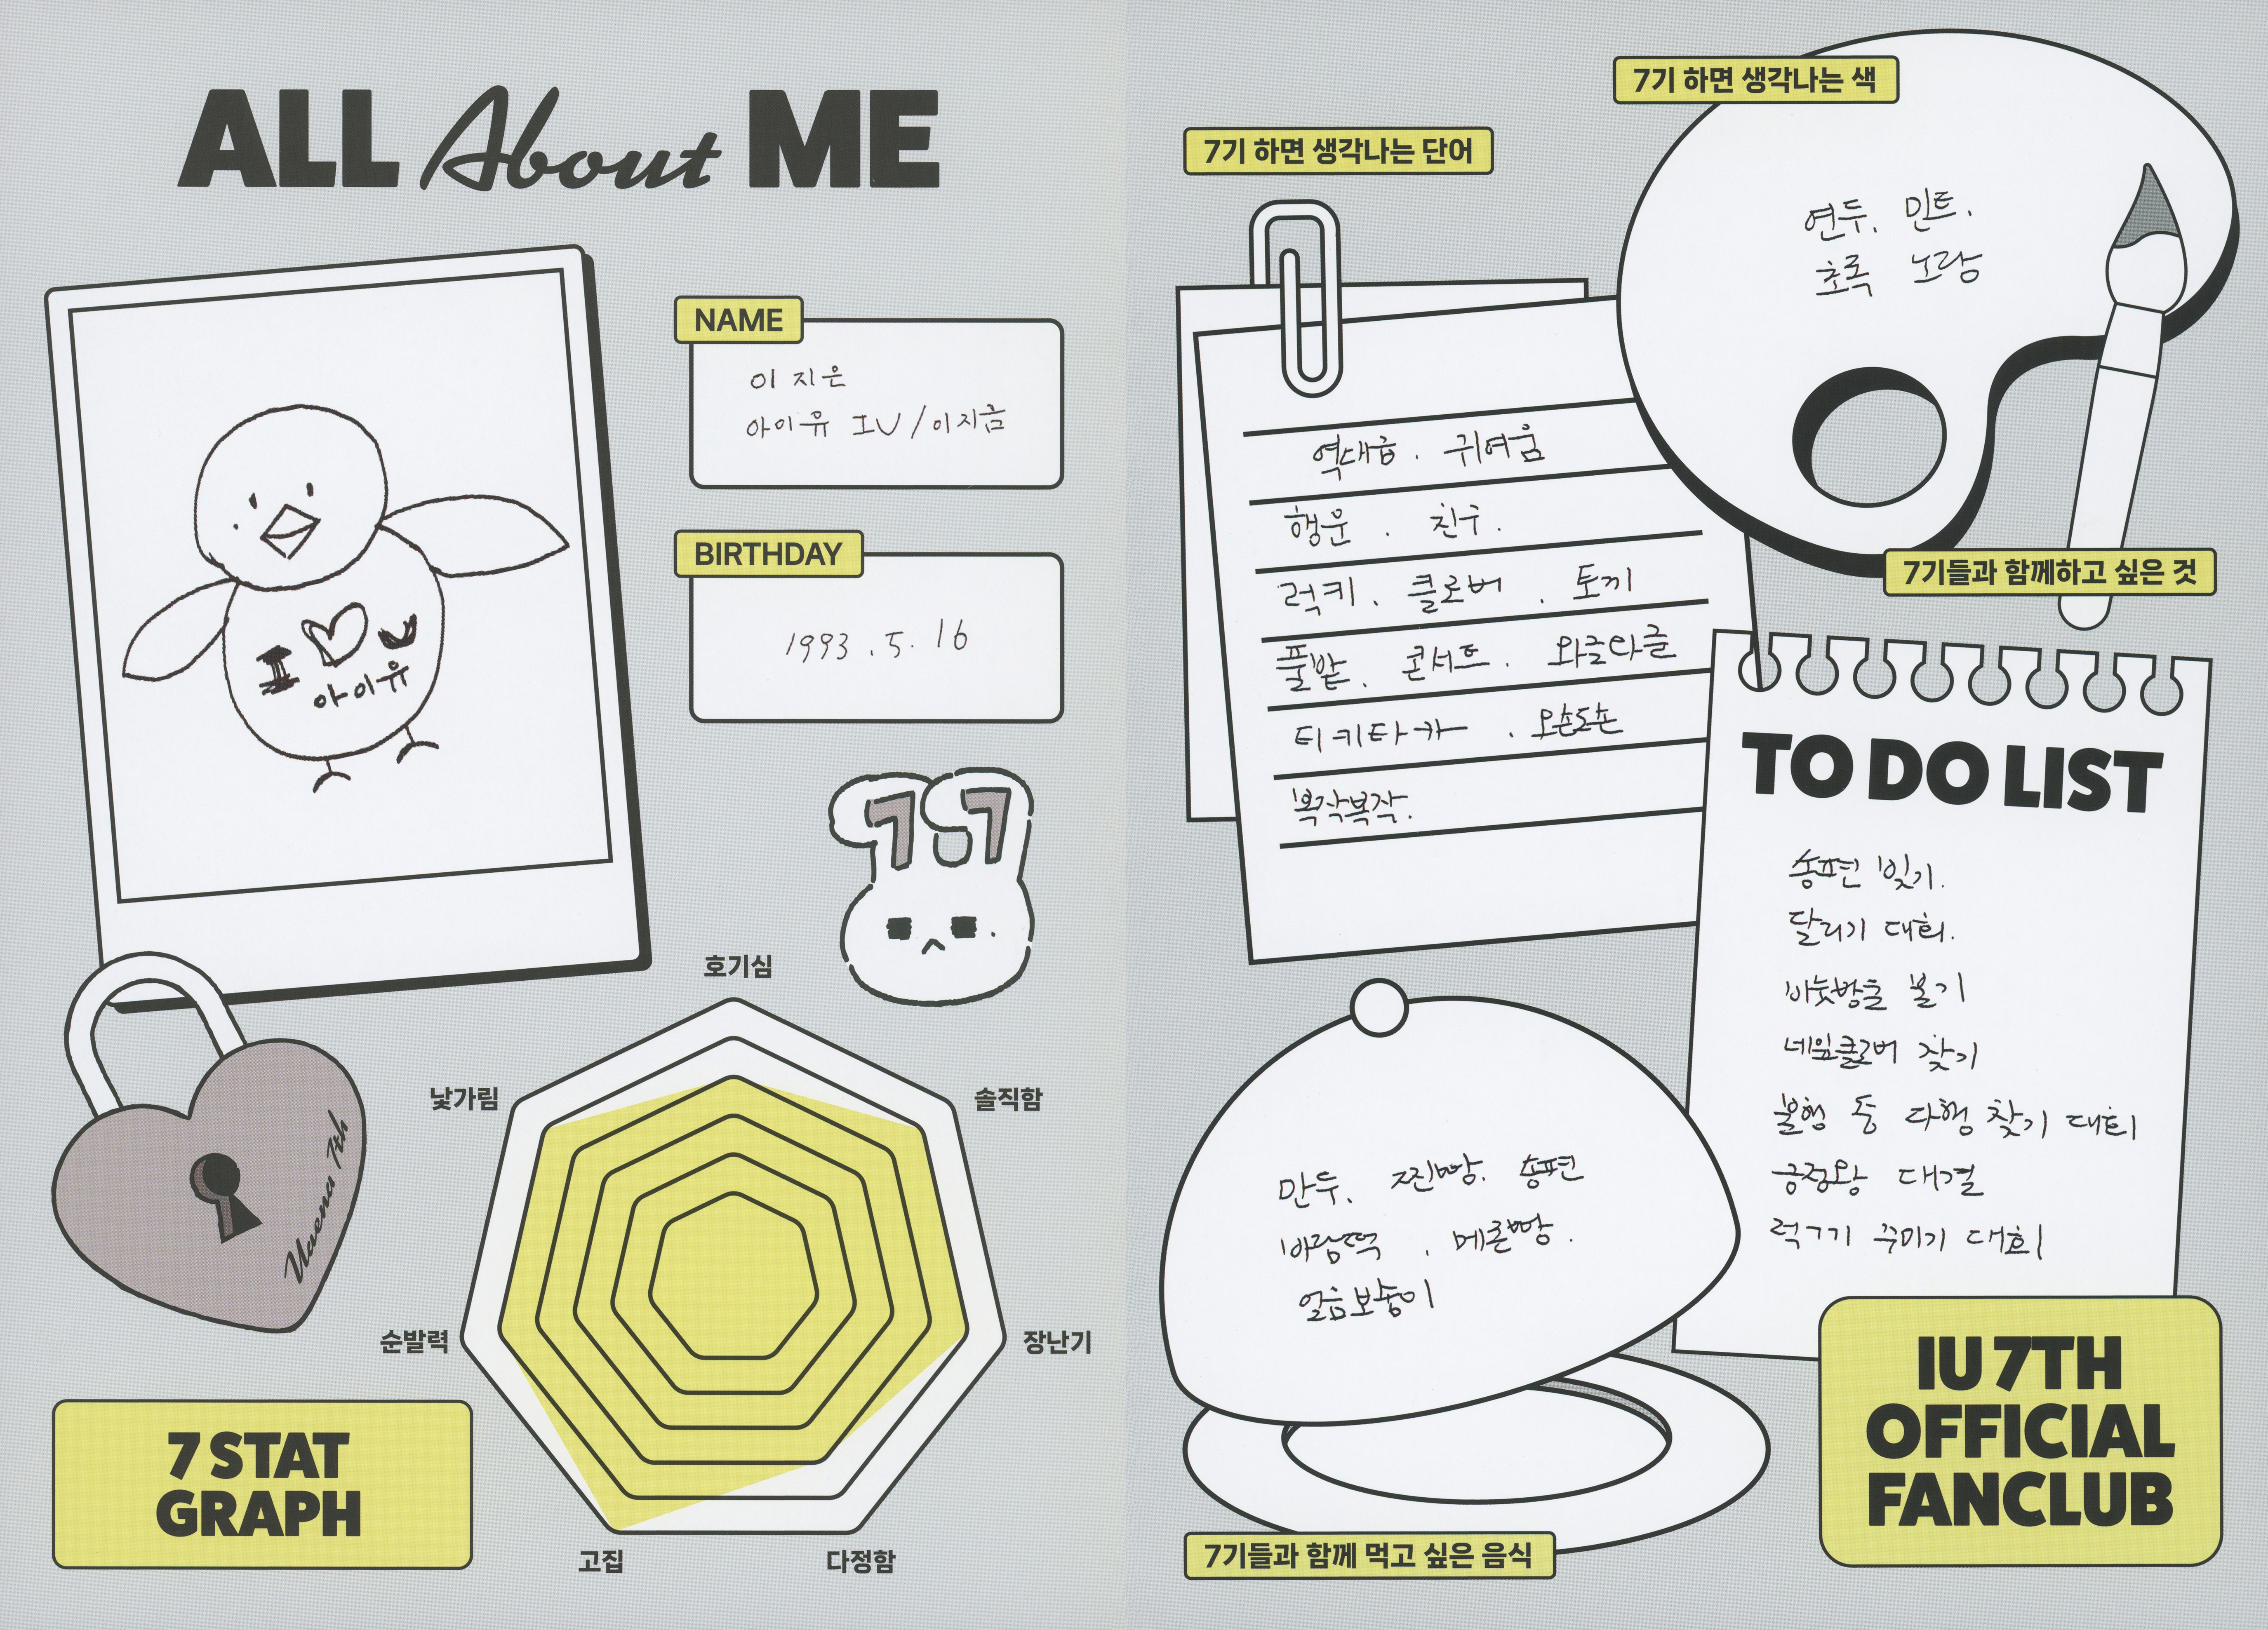 ALL About ME
I ♡ U
아이유
NAME
이지은
아이유 IU / 이지금
BIRTHDAY
1993.5.16
77
Uaena 7th
호기심
낯가림
솔직함
순발력
장난기
고집
다정함
7 STAT
GRAPH
7기 하면 생각나는 단어
역대급. 귀여움
행운. 친구.
럭키. 클로버. 토끼
풀밭. 콘서트. 와글와글
티키타카. 오손도손
복작복작.
7기 하면 생각나는 색
연두. 민트.
초록 노랑
7기들과 함께하고 싶은 것
TO DO LIST
송편 빚기.
달리기 대회.
비눗방울 불기
네잎클로버 찾기
불행 중 다행 찾기 대회
긍정왕 대결
럭키 꾸미기 대회
만두. 찐빵. 송편
바람떡. 메론빵.
얼음보숭이
7기들과 함께 먹고 싶은 음식
IU 7TH
OFFICIAL
FANCLUB